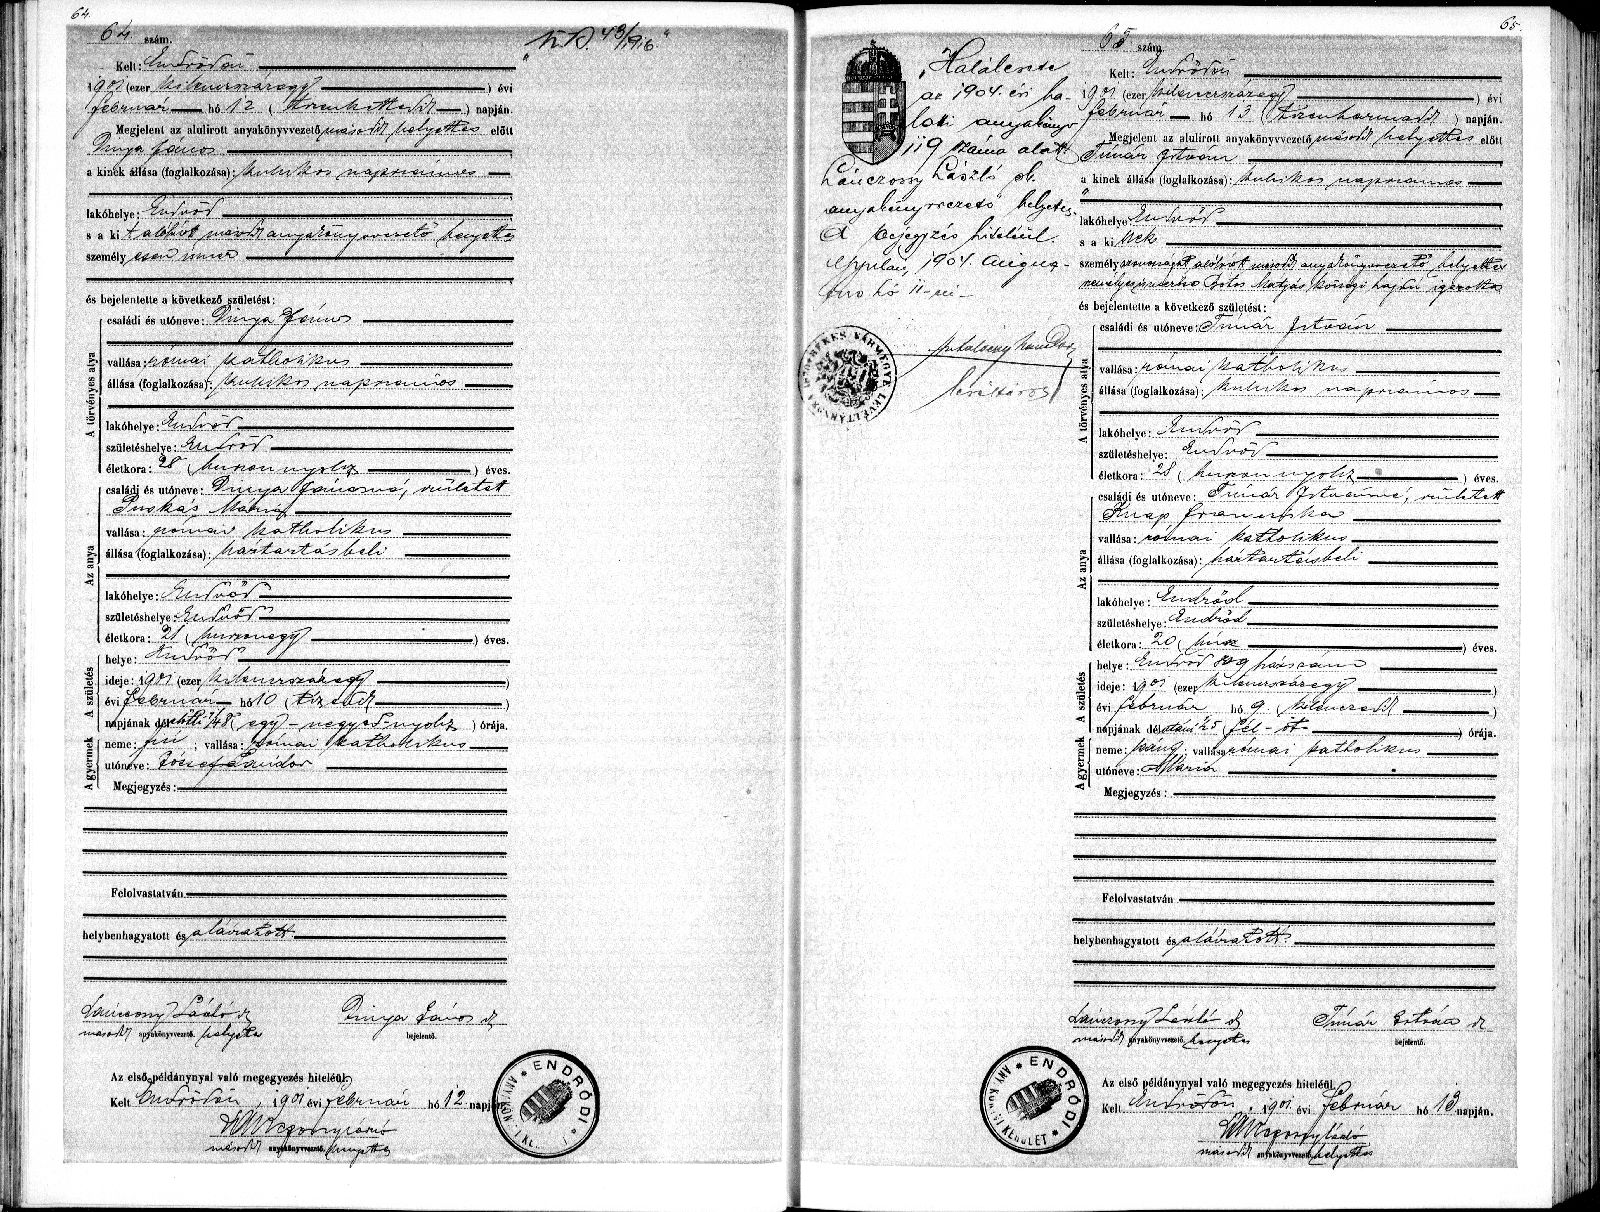 64.
64 szám.
Kelt: Endrődön
1901 (ezer kilencszázegy) évi
február hó 12 (tizenkettedik) napján.
Megjelent az alulirott anyakönyvvezető másodh helyettes előtt
Dinya János
a kinek állása (foglalkozása): kubikos napszámos
lakóhelye: Endrőd
s a ki t alólirott másodh anyakönyvvezető helyettes
személyesen ismer
és bejelentette a következő születést:
A törvényes atya
családi és utóneve: Dinya János
vallása: római katholikus
állása (foglalkozása): kubikos napszámos
lakóhelye: Endrőd
születéshelye: Endrőd
életkora: 28 (huszonnyolcz) éves.
Az anya
családi és utóneve: Dinya Jánosné, született
Puskás Mária
vallása: római katholikus
állása (foglalkozása): háztartásbeli
lakóhelye: Endrőd
születéshelye: Endrőd
életkora: 21 (huszonegy) éves.
A születés
helye: Endrőd
ideje: 1901 (ezer kilencszázegy)
évi február hó 10 (tizedik)
napjának délelőtti 1/4 8 (egy-negyed-nyolcz) órája.
A gyermek
neme: fiú; vallása: római katholikus
utóneve: József Sándor
Megjegyzés:
Felolvastatván
helybenhagyatott és aláiratott.
Lánczossy László sk
másodh anyakönyvvezető helyettes
Dinya János sk
bejelentő.
Az első példánynyal való megegyezés hiteléül.
Kelt Endrődön, 1901 évi február hó 12 napján
másodh anyakönyvvezető helyettes
ENDRŐDI
65.
„Haláleste
az 1904. évi ha-
lati anyakönyv
119 száma alatt
Lánczossy László sk.
anyakönyvvezető helyettes.
A bejegyzés hiteléül.
Gyulán, 1904. augusz-
tus hó 11-én
levéltáros
BÉKÉS VÁRMEGYE LEVÉLTÁRNOKI
65 szám.
Kelt: Endrődön
1901 (ezer kilencszázegy) évi
február hó 13 (tizenharmadik) napján.
Megjelent az alulirott anyakönyvvezető másodh helyettes előtt
Timár István
a kinek állása (foglalkozása): kubikos napszámos
lakóhelye: Endrőd
s a ki nek
személyazonosságát alólirott másodh anyakönyvvezető helyettes
Matyás községi hajdú igazolta
és bejelentette a következő születést:
A törvényes atya
családi és utóneve: Timár István
vallása: római katholikus
állása (foglalkozása): kubikos napszámos
lakóhelye: Endrőd
születéshelye: Endrőd
életkora: 28 (huszonnyolcz) éves.
Az anya
családi és utóneve: Timár Istvánné, született
Knap Franciska
vallása: római katholikus
állása (foglalkozása): háztartásbeli
lakóhelye: Endrőd
születéshelye: Endrőd
életkora: 20 (húsz) éves.
A születés
helye: Endrőd 809 házszám
ideje: 1901 (ezer kilencszázegy)
évi február hó 9 (kilenczedik)
napjának délutáni 1/2 5 (fél-öt) órája.
A gyermek
neme: leány; vallása: római katholikus
utóneve: Mária
Megjegyzés:
Felolvastatván
helybenhagyatott és aláiratott.
Lánczossy László sk
másodh anyakönyvvezető helyettes
Timár István sk
bejelentő.
Az első példánynyal való megegyezés hiteléül.
Kelt Endrődön, 1901 évi február hó 13 napján.
másodh anyakönyvvezető helyettes
ENDRŐDI